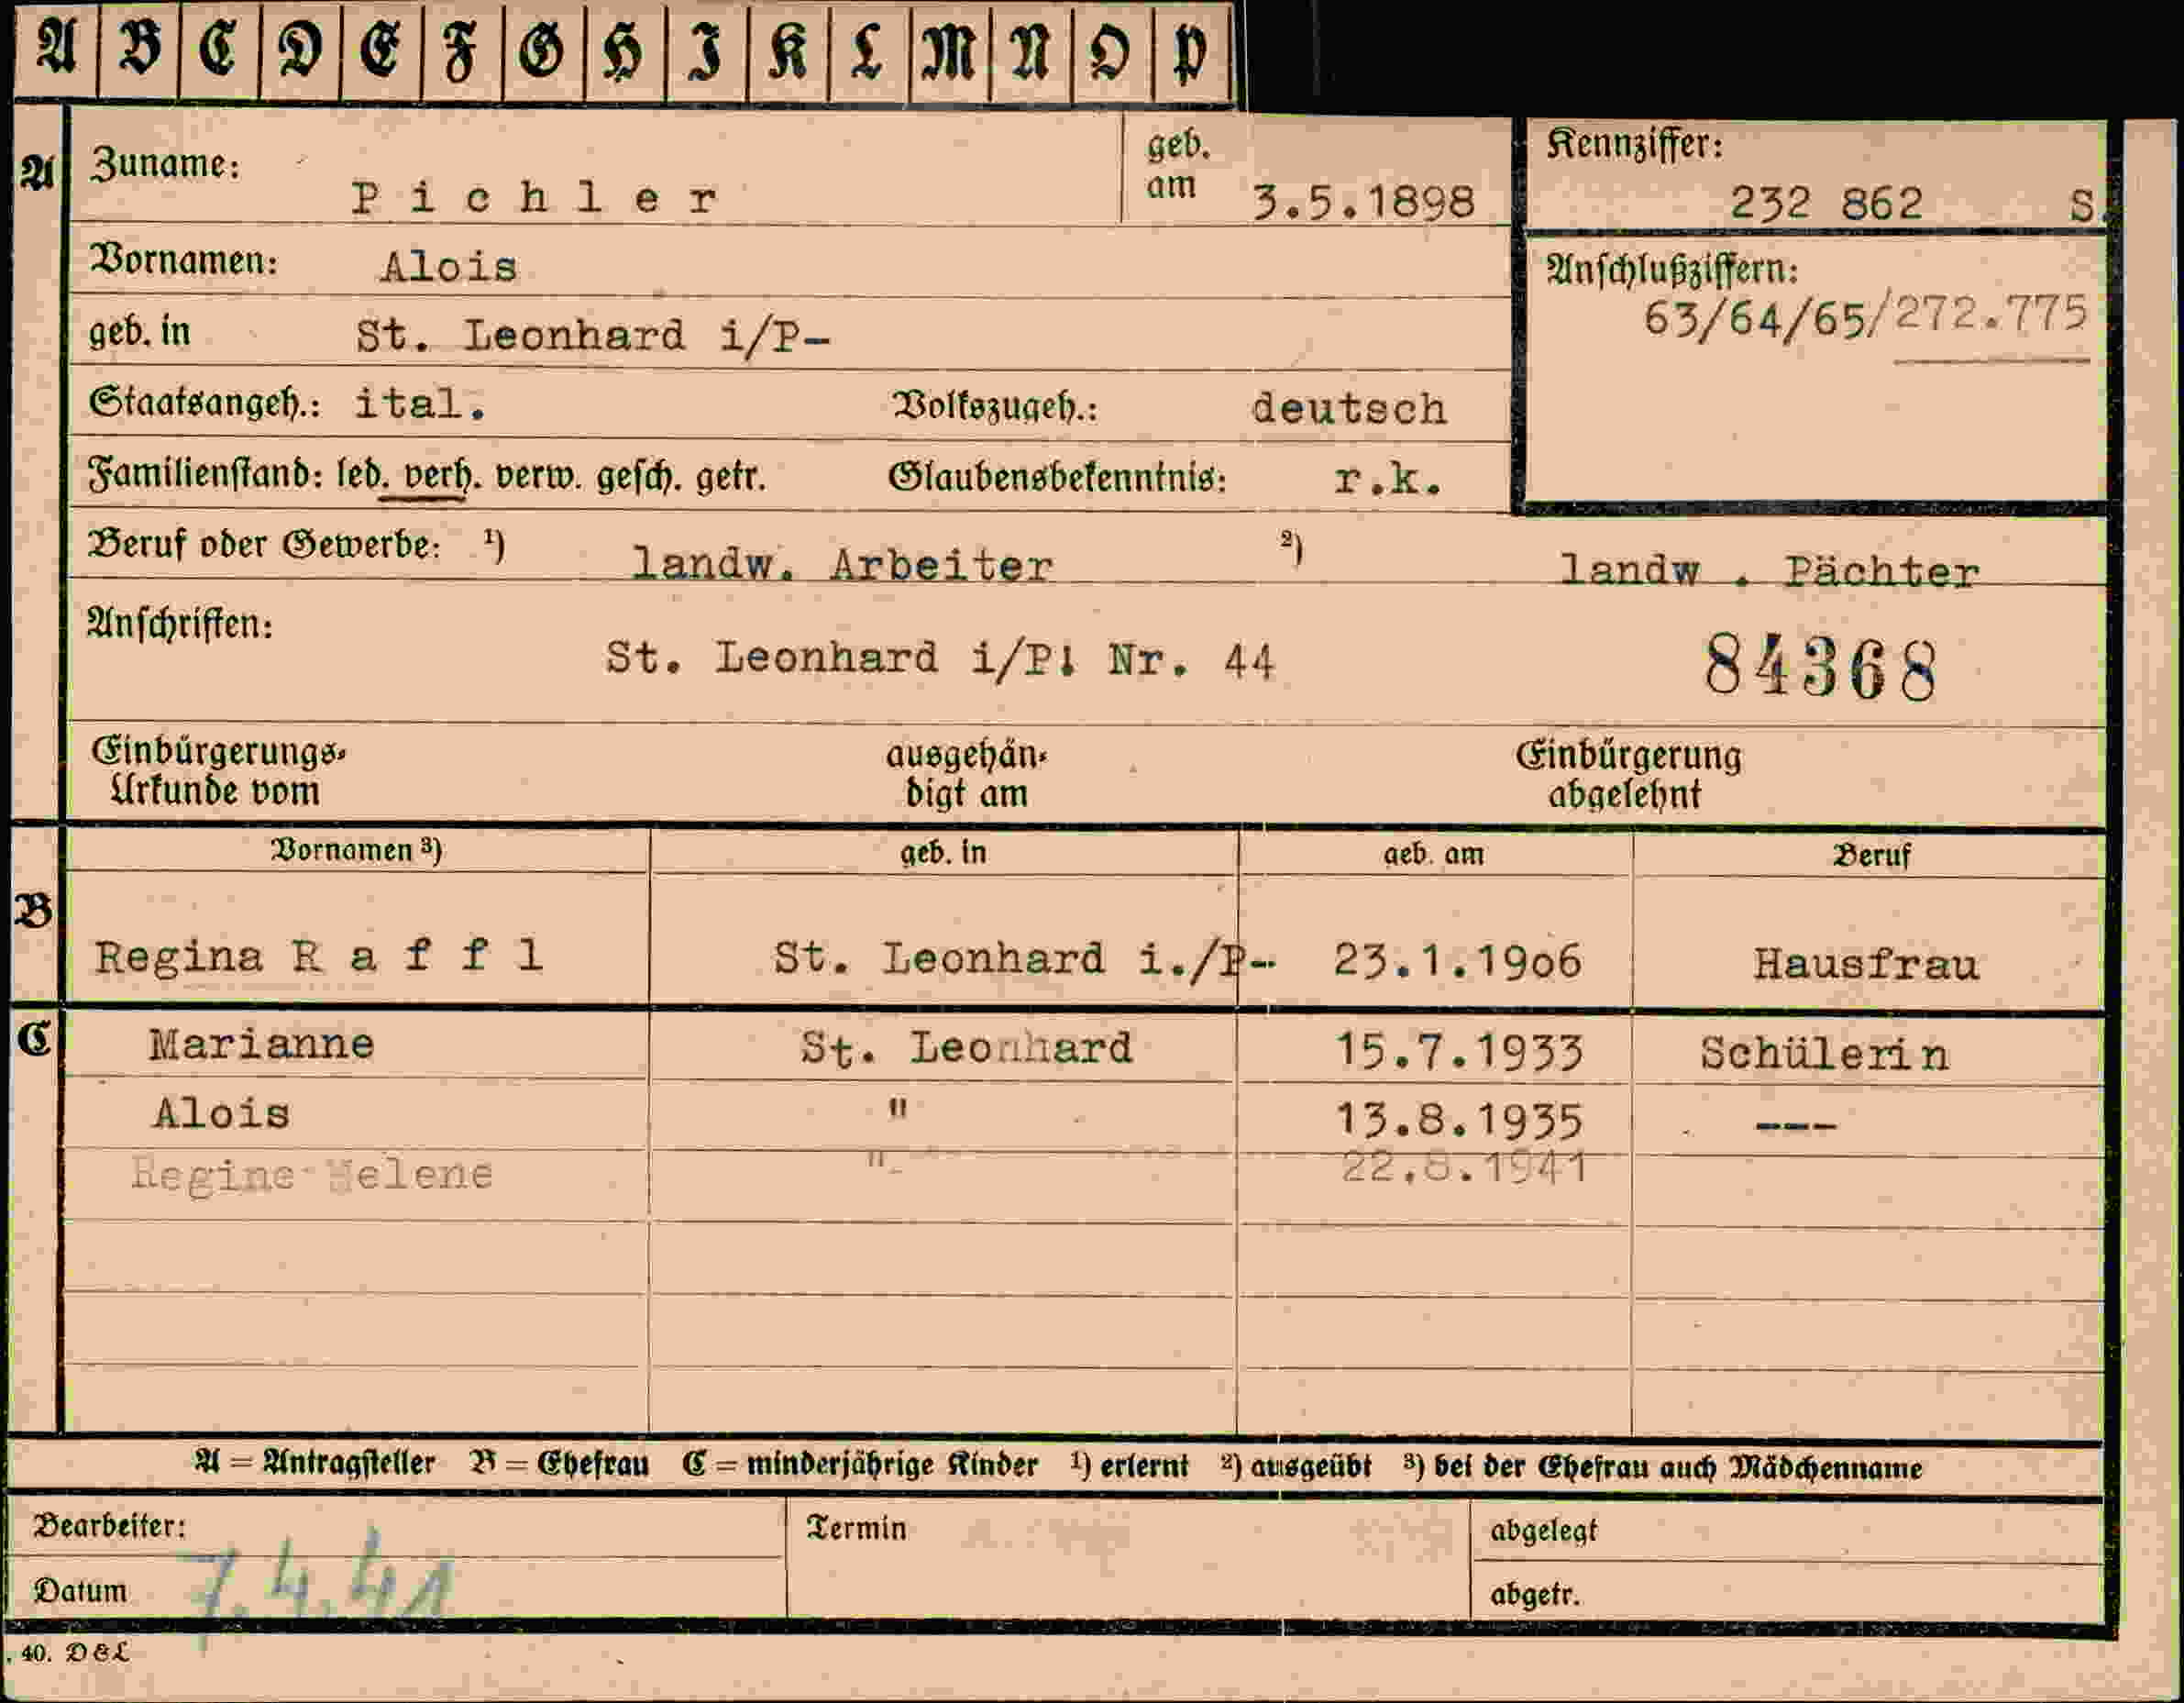 A B C D E F G H I K L M N O P
A
Zuname: Pichler geb. am 3.5.1898
Kennziffer: 232 862 S.
Vornamen: Alois
Anschlußziffern: 63/64/65/272.775
geb. in St. Leonhard i/P-
Staatsangeh.: ital. Volkszugeh.: deutsch
Familienstand: led. verh. verw. gesch. getr. Glaubensbekenntnis: r.k.
Beruf oder Gewerbe: ¹) landw. Arbeiter ²) landw . Pächter
Anschriften:
St. Leonhard i/P. Nr. 44 84368
Einbürgerungs-Urkunde vom ausgehändigt am Einbürgerung abgelehnt
Vornamen ³) geb. in geb. am Beruf
B
Regina Raffl St. Leonhard i./P-- 23.1.19o6 Hausfrau
C
Marianne St. Leonhard 15.7.1933 Schülerin
Alois " 13.8.1935 ---
Regine Helene " 22.8.1941
A = Antragsteller B = Ehefrau C = minderjährige Kinder ¹) erlernt ²) ausgeübt ³) bei der Ehefrau auch Mädchenname
Bearbeiter: Termin abgelegt
Datum 7.4.41 abgetr.
. 40. D&L